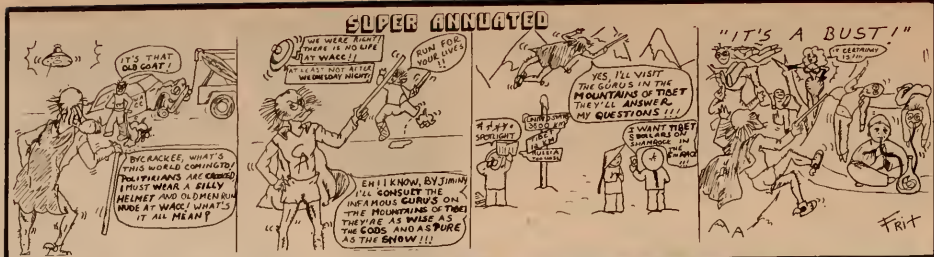 SUPER ANNUATED
IT'S THAT
OLD GOAT!
BYCRACKEE, WHAT'S
THIS WORLD COMING TO!
POLITICIANS ARE CROOKED
I MUST WEAR A SILLY
HELMET AND OLD MEN RUN
NUDE AT WACC! WHAT'S
IT ALL MEAN?
WE WERE RIGHT!
THERE IS NO LIFE
AT WACC!!
AT LEAST NOT AFTER
WEDNESDAY NIGHT!
RUN FOR
YOUR LIVES
!!
EH! I KNOW, BY JIMINY
I'LL CONSULT THE
INFAMOUS GURU'S ON
THE MOUNTAINS OF TIBET
THEY'RE AS WISE AS
THE GODS AND AS PURE
AS THE SNOW!!!
YES, I'LL VISIT
THE GURUS IN THE
MOUNTAINS OF TIBET
THEY'LL ANSWER
MY QUESTIONS!!!
SPOTLIGHT
UNITED STATES
3500 KM
TIBET
RUSSIA
I WANT TIBET
5 DOLLARS ON
SHAMROCK IN
THE
!!!
"IT'S A BUST!"
IT CERTAINLY
IS!!!
Frit